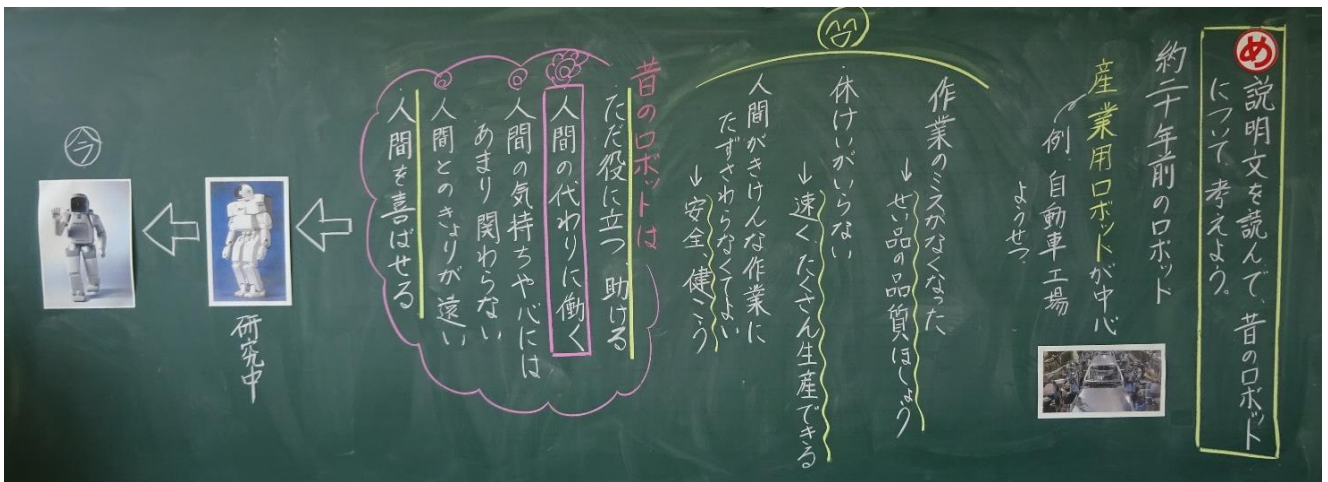 め 説明文を読んで、昔のロボット
について考えよう。
約二十年前のロボット
産業用ロボットが中心
例.自動車工場
ようせつ
作業のミスがなくなった
↓せい品の品質ほしょう
・休けいがいらない
↓速く、たくさん生産できる
人間がきけんな作業に
たずさわらなくてよい
↓安全、健こう
昔のロボットは
・ただ役に立つ、助ける
・人間の代わりに働く
・人間の気持ちや心には
あまり関わらない
・人間とのきょりが遠い
・人間を喜ばせる
研究中
今